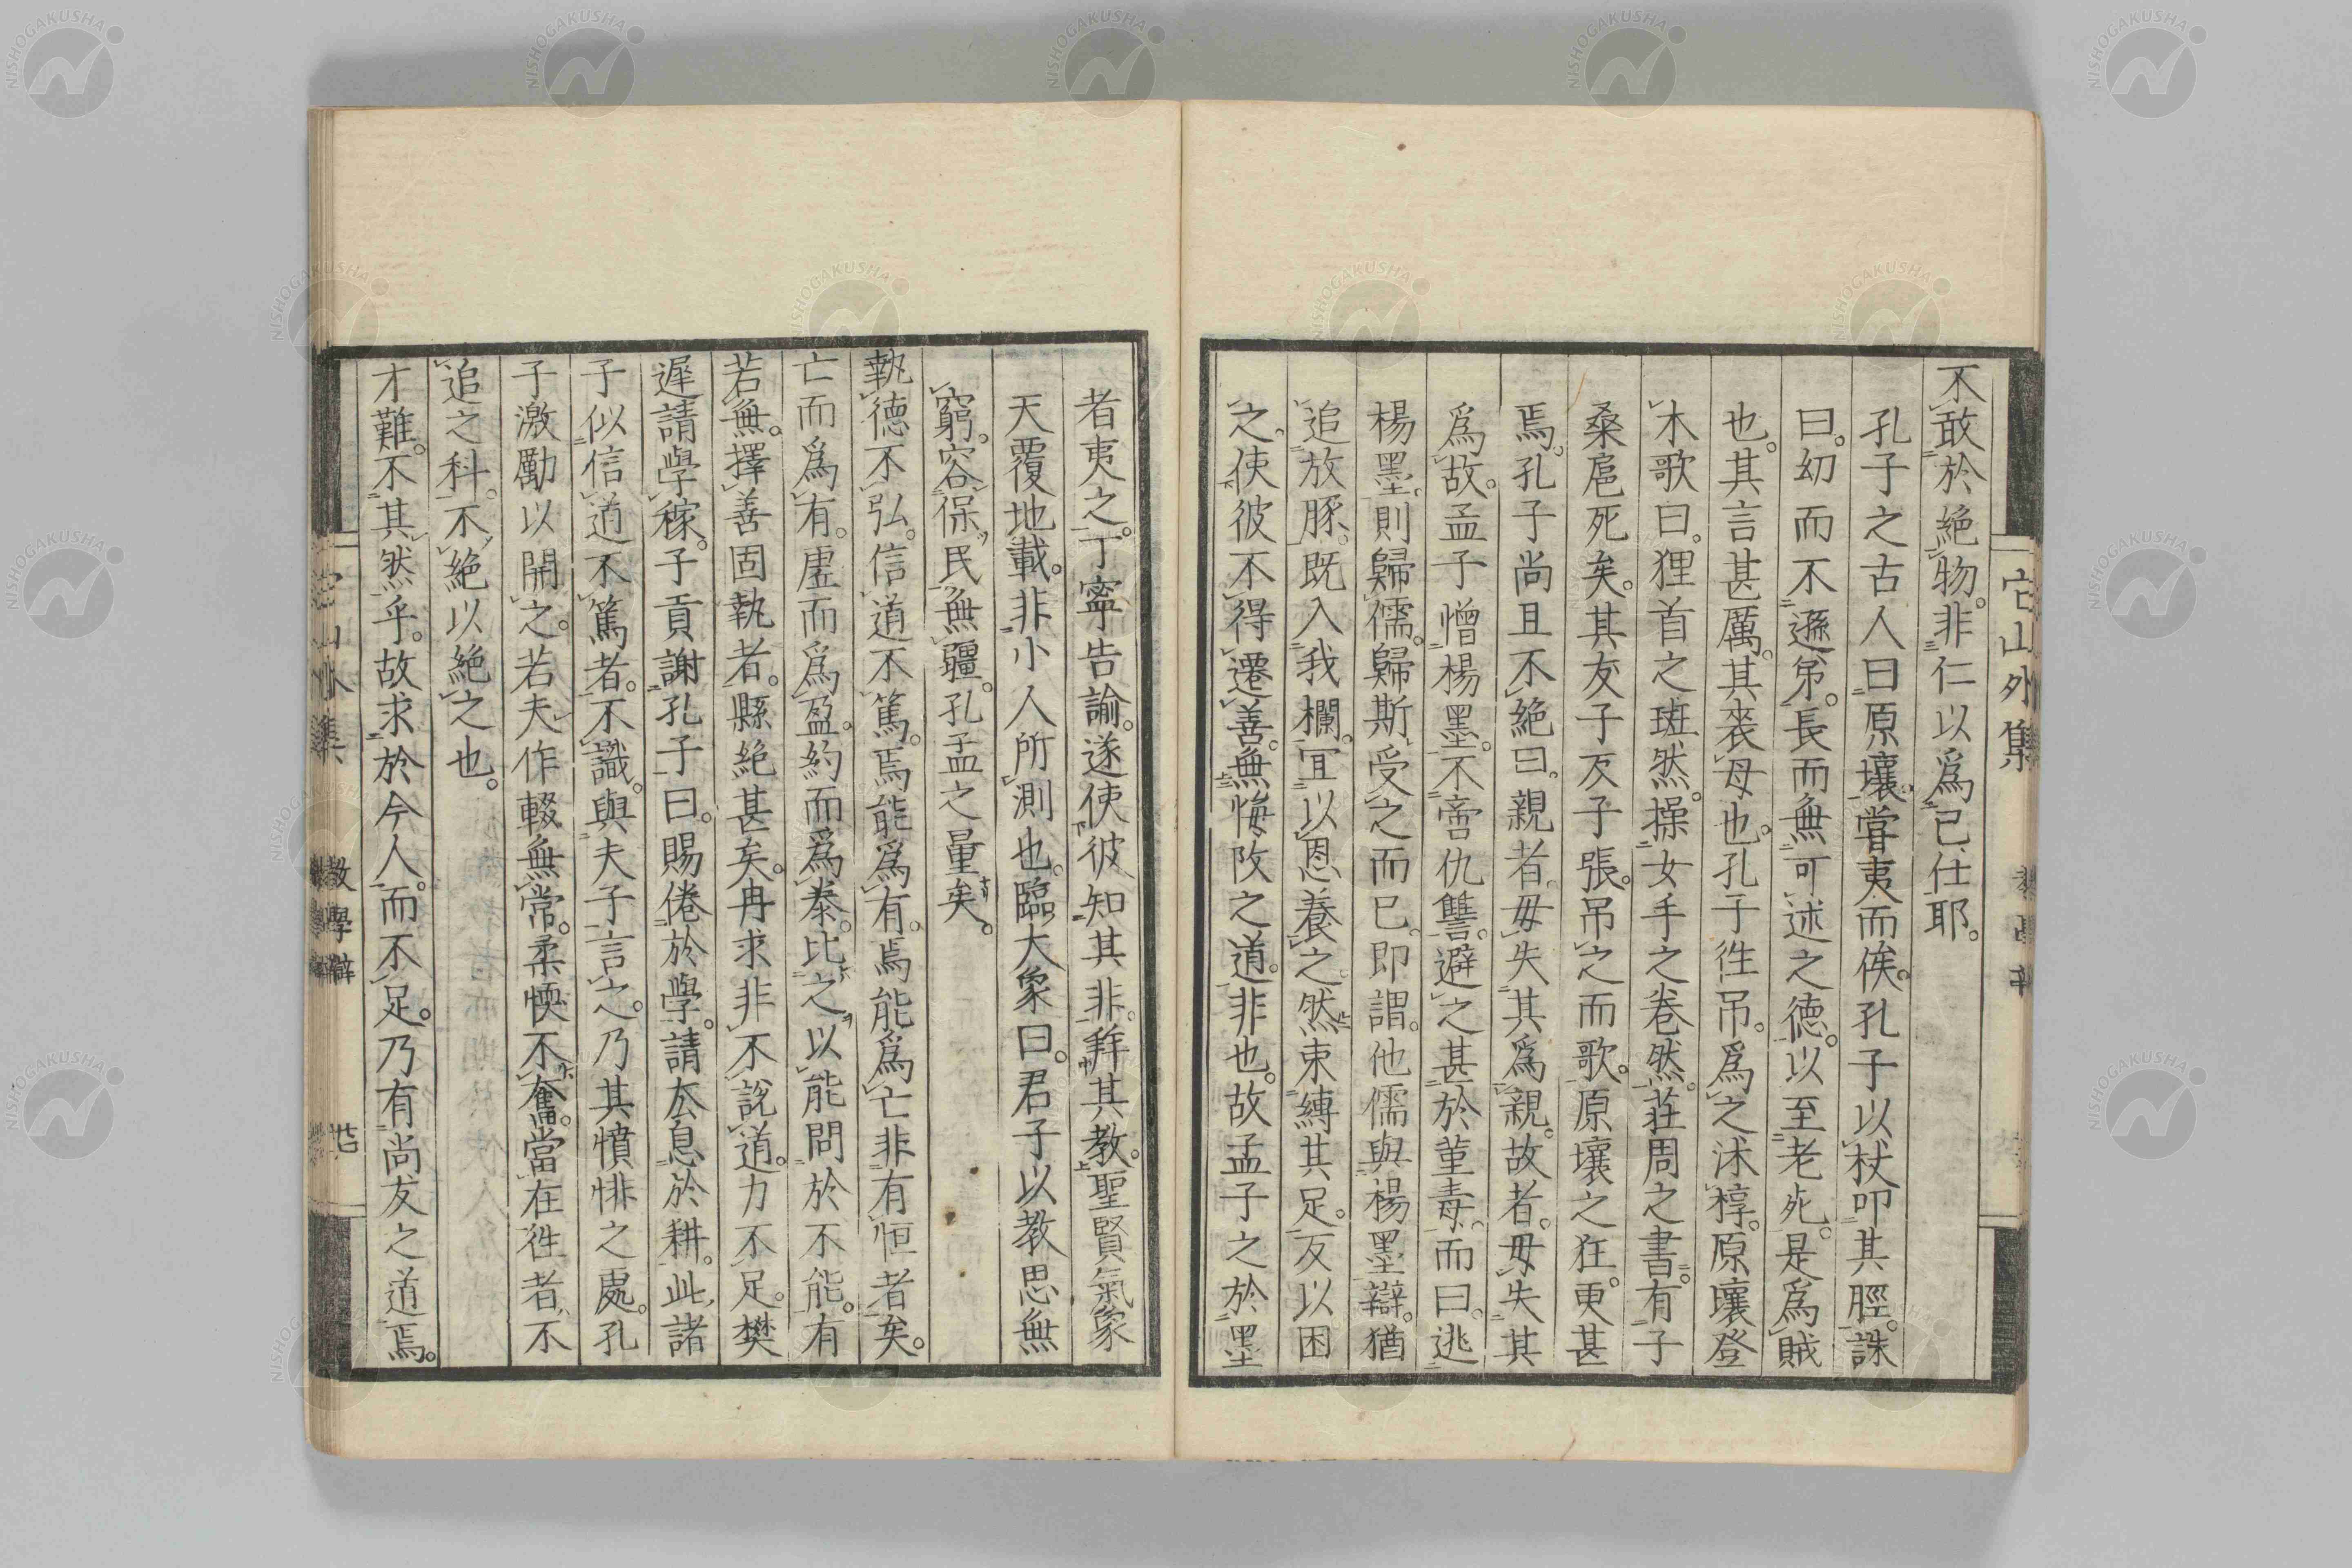 不敢於絶物。非仁以爲己仕耶。
孔子之古人曰原壤。嘗夷而俟。孔子以杖叩其脛。誅
曰。幼而不遜弟。長而無可述之德。以至老死。是爲賊
也。其言甚厲。其喪母也。孔子徃吊。爲之沐椁。原壤登
木歌曰。狸首之斑然。操女手之卷然。莊周之書。有子
桑扈死矣。其友子反子張。吊之而歌。原壤之狂。更甚
焉。孔子尚且不絶曰。親者。毋失其爲親。故者。毋失其
爲故。孟子憎楊墨。不啻仇讐。避之甚於董毒。而曰。逃
楊墨。則歸儒。歸斯受之而已。即謂。他儒與楊墨辯。猶
追放豚。既入我欄。冝以恩養之。然束縛其足。反以困
之。使彼不得遷善。無悔改之道。非也。故孟子之於墨
者夷之。丁寧告諭。遂使彼知其非。弃其教。聖賢氣象
天覆地載。非小人所測也。臨大象曰。君子以教思無
窮。容保民無疆。孔孟之量矣。
執德不弘。信道不篤。焉能爲有。焉能爲亡。非有恒者矣。
亡而爲有。虛而爲盈。約而爲泰。比之以能問於不能。有
若無。擇善固執者。縣絶甚矣。冉求非不說道。力不足。樊
遲請學稼。子貢謝孔子曰。賜倦於學。請厺息於耕。此諸
子似信道不篤者。不識。與夫子言之。乃其憤悱之處。孔
子激勵以開之。若夫作輟無常。柔愞不奮。當在徃者不
追之科。不絶以絶之也。
才難。不其然乎。故求於今人。而不足。乃有尚友之道焉。
它山外集
它山外集 教學辯 廿七